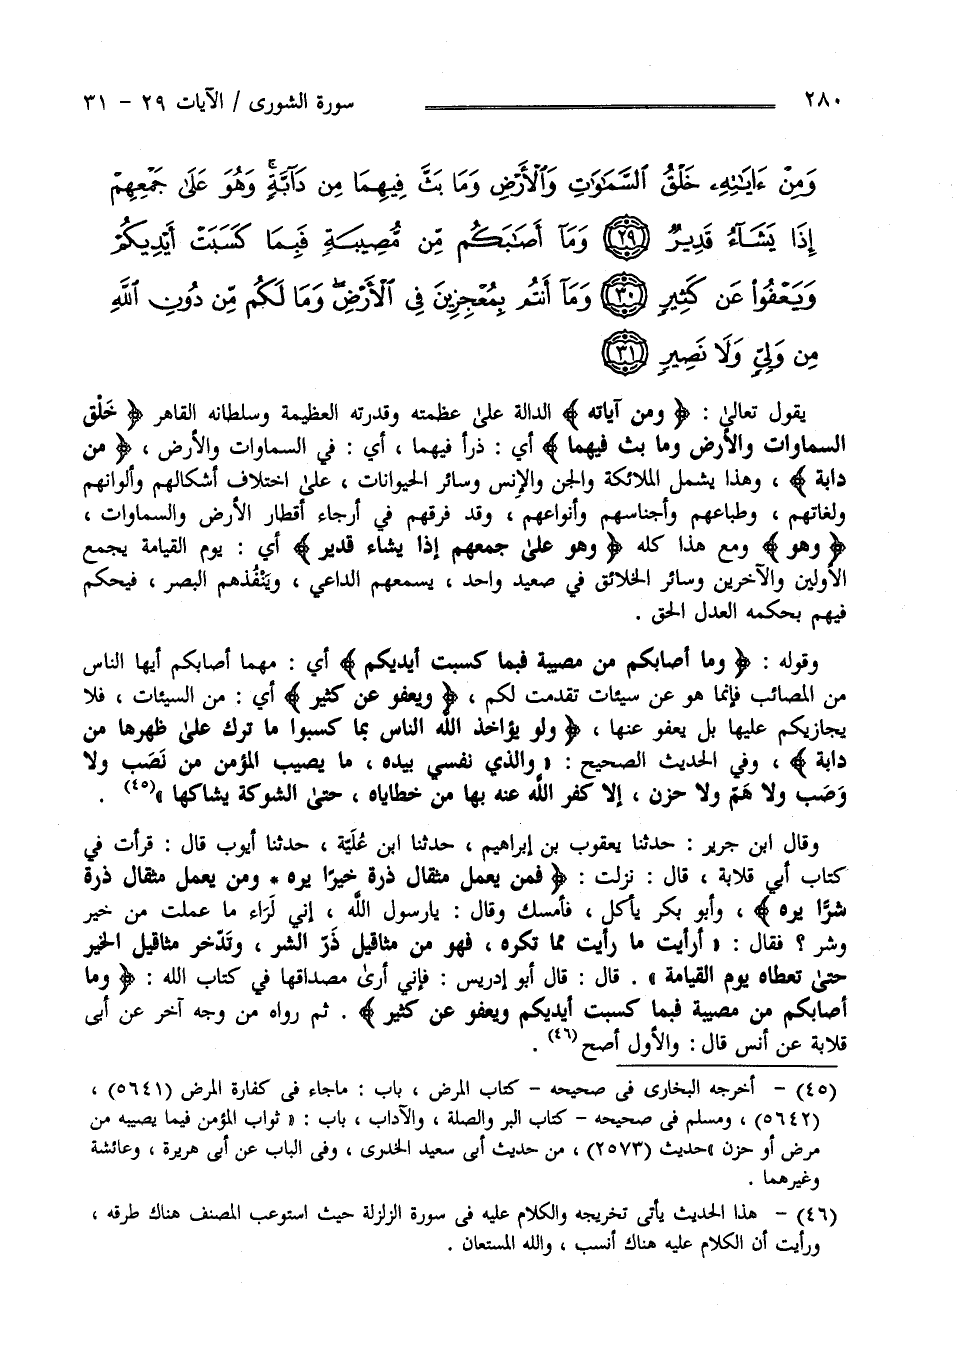 ٢٨٠ سورة الشورى / الآيات ٢٩ - ٣١
وَمِنْ ءَايَٰتِهِۦ خَلْقُ ٱلسَّمَٰوَٰتِ وَٱلْأَرْضِ وَمَا بَثَّ فِيهِمَا مِن دَآبَّةٍ ۚ وَهُوَ عَلَىٰ جَمْعِهِمْ
إِذَا يَشَآءُ قَدِيرٌ ٢٩ وَمَآ أَصَٰبَكُم مِّن مُّصِيبَةٍ فَبِمَا كَسَبَتْ أَيْدِيكُمْ
وَيَعْفُوا۟ عَن كَثِيرٍ ٣٠ وَمَآ أَنتُم بِمُعْجِزِينَ فِى ٱلْأَرْضِ ۖ وَمَا لَكُم مِّن دُونِ ٱللَّهِ
مِن وَلِىٍّ وَلَا نَصِيرٍ ٣١
يقول تعالىٰ : ﴿ ومن آياته ﴾ الدالة علىٰ عظمته وقدرته العظيمة وسلطانه القاهر ﴿ خَلْق
السماوات والأرض وما بث فيهما ﴾ أي : ذرأ فيهما ، أي : في السماوات والأرض ، ﴿ من
دابة ﴾ ، وهذا يشمل الملائكة والجن والإنس وسائر الحيوانات ، علىٰ اختلاف أشكالهم وألوانهم
ولغاتهم ، وطباعهم وأجناسهم وأنواعهم ، وقد فرقهم في أرجاء أقطار الأرض والسماوات ،
﴿ وهو ﴾ ومع هذا كله ﴿ وهو علىٰ جمعهم إذا يشاء قدير ﴾ أي : يوم القيامة يجمع
الأولين والآخرين وسائر الخلائق في صعيد واحد ، يسمعهم الداعي ، ويَنْفُذهم البصر ، فيحكم
فيهم بحكمه العدل الحق .
وقوله : ﴿ وما أصابكم من مصيبة فبما كسبت أيديكم ﴾ أي : مهما أصابكم أيها الناس
من المصائب فإنما هو عن سيئات تقدمت لكم ، ﴿ ويعفو عن كثير ﴾ أي : من السيئات ، فلا
يجازيكم عليها بل يعفو عنها ، ﴿ ولو يؤاخذ اللَّه الناس بما كسبوا ما ترك علىٰ ظهرها من
دابة ﴾ ، وفي الحديث الصحيح : « والذي نفسي بيده ، ما يصيب المؤمن من نَصَب ولا
وَصَب ولا هَمّ ولا حزن ، إلا كفر اللَّه عنه بها من خطاياه ، حتىٰ الشوكة يشاكها »(٤٥) .
وقال ابن جرير : حدثنا يعقوب بن إبراهيم ، حدثنا ابن عُلَيَّة ، حدثنا أيوب قال : قرأت في
كتاب أبي قلابة ، قال : نزلت : ﴿ فمن يعمل مثقال ذرة خيرًا يره * ومن يعمل مثقال ذرة
شرًّا يره ﴾ ، وأبو بكر يأكل ، فأمسك وقال : يارسول اللَّه ، إني لَرَاء ما عملت من خير
وشر ؟ فقال : « أرأيت ما رأيت مما تكره ، فهو من مثاقيل ذَرّ الشر ، وتَدّخر مثاقيل الخير
حتىٰ تعطاه يوم القيامة » . قال : قال أبو إدريس : فإني أرىٰ مصداقها في كتاب الله : ﴿ وما
أصابكم من مصيبة فبما كسبت أيديكم ويعفو عن كثير ﴾ . ثم رواه من وجه آخر عن أبى
قلابة عن أنس قال : والأول أصح(٤٦) .
(٤٥) - أخرجه البخارى فى صحيحه - كتاب المرض ، باب : ماجاء فى كفارة المرض (٥٦٤١) ،
(٥٦٤٢) ، ومسلم فى صحيحه - كتاب البر والصلة ، والآداب ، باب : « ثواب المؤمن فيما يصيبه من
مرض أو حزن »حديث (٢٥٧٣) ، من حديث أبى سعيد الخدرى ، وفى الباب عن أبى هريرة ، وعائشة
وغيرهما .
(٤٦) - هذا الحديث يأتى تخريجه والكلام عليه فى سورة الزلزلة حيث استوعب المصنف هناك طرقه ،
ورأيت أن الكلام عليه هناك أنسب ، والله المستعان .